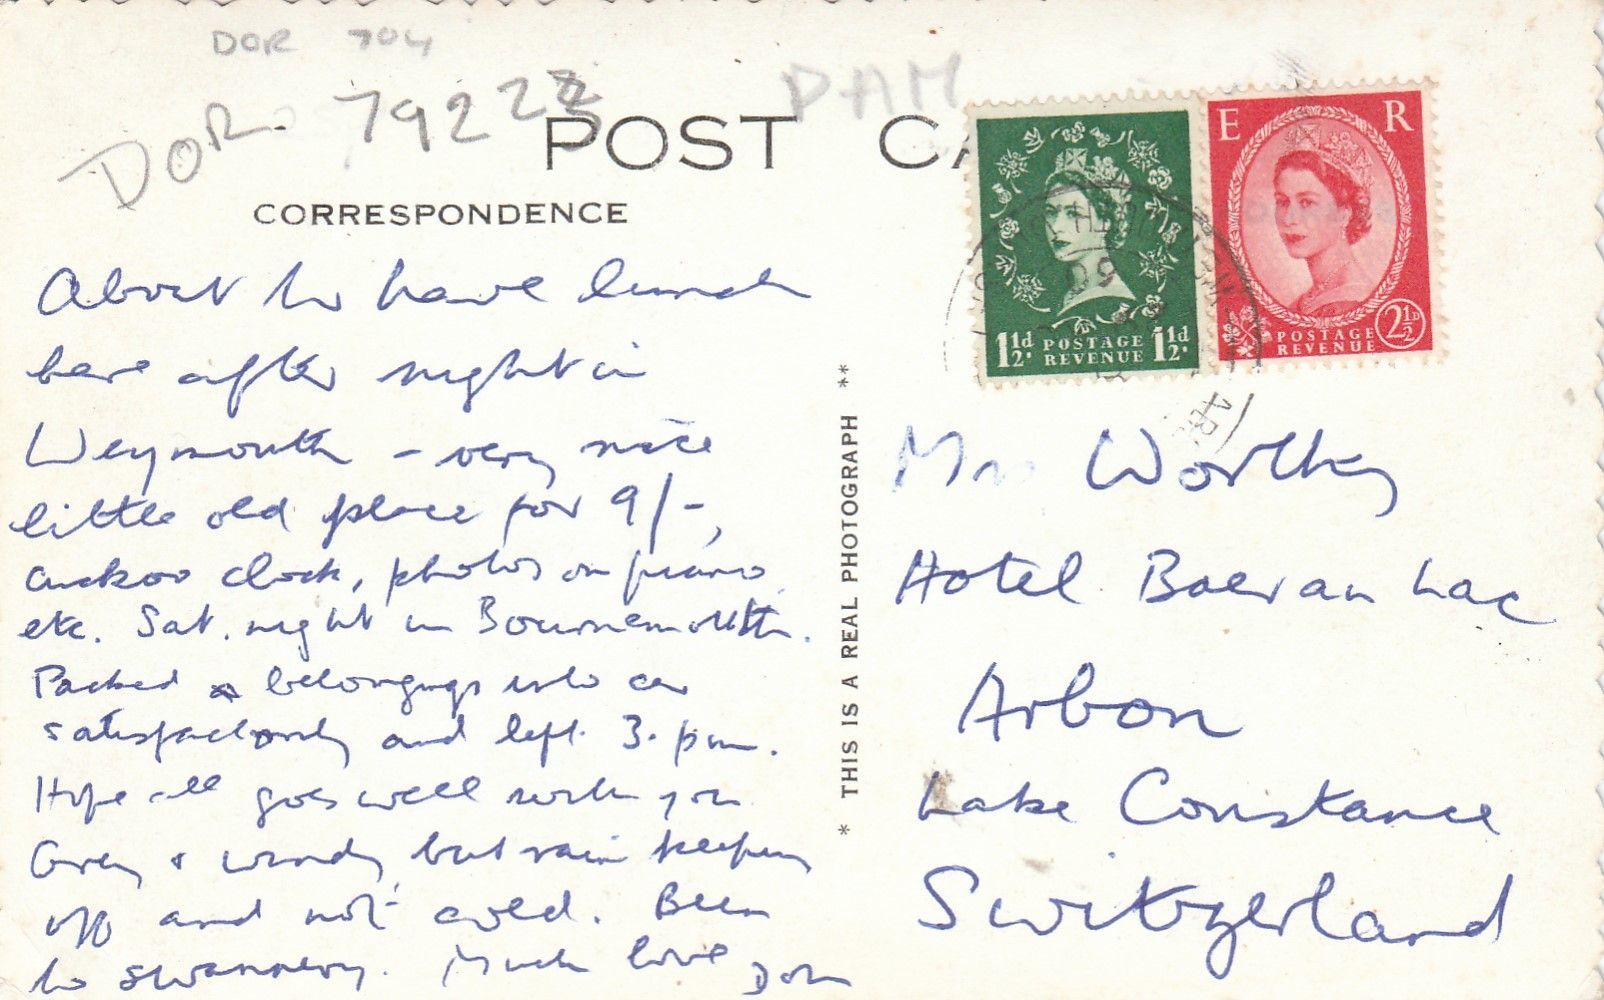 DOR 704
DOR. 7922
PAM
POST CA
CORRESPONDENCE
About to have lunch
here after night in
Weymouth - very nice
little old place for 9/-,
cuckoo clock, photos on piano
etc. Sat. night in Bournemouth.
Packed belongings into car
satisfactorily and left 3. pm.
Hope all goes well with you
Grey & windy but rain keeping
off and not cold. Been
to swannery. Much love
* THIS IS A REAL PHOTOGRAPH **
1½d. POSTAGE REVENUE 1½d.
E R
POSTAGE REVENUE 2½d
Mrs Worthy
Hotel Baer au Lac
Arbon
Lake Constance
Switzerland